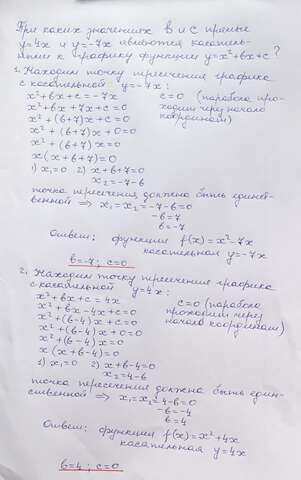 При каких значениях b и c прямые
y=4x и y=-7x являются касатель-
ными к графику функции y=x²+bx+c?
1. Находим точку пересечения графика
с касательной y=-7x:
x²+bx+c=-7x c=0 (парабола про-
x²+bx+7x+c=0 ходит через начало
x²+(b+7)x+c=0 координат)
x²+(b+7)x+0=0
x²+(b+7)x=0
x(x+b+7)=0
1) x₁=0 2) x+b+7=0
x₂=-7-b
точка пересечения должна быть единст-
венной ⇒ x₁=x₂=-7-b=0
-b=7
b=-7
Ответ: функция f(x)=x²-7x
касательная y=-7x
b=-7; c=0
2. Находим точку пересечения графика
с касательной y=4x:
x²+bx+c=4x c=0 (парабола
x²+bx-4x+c=0 проходит через
x²+(b-4)x+c=0 начало координат)
x²+(b-4)x+0=0
x²+(b-4)x=0
x(x+b-4)=0
1) x₁=0 2) x+b-4=0
x₂=4-b
точка пересечения должна быть един-
ственной ⇒ x₁=x₂=4-b=0
-b=-4
b=4
Ответ: функция f(x)=x²+4x
касательная y=4x
b=4; c=0